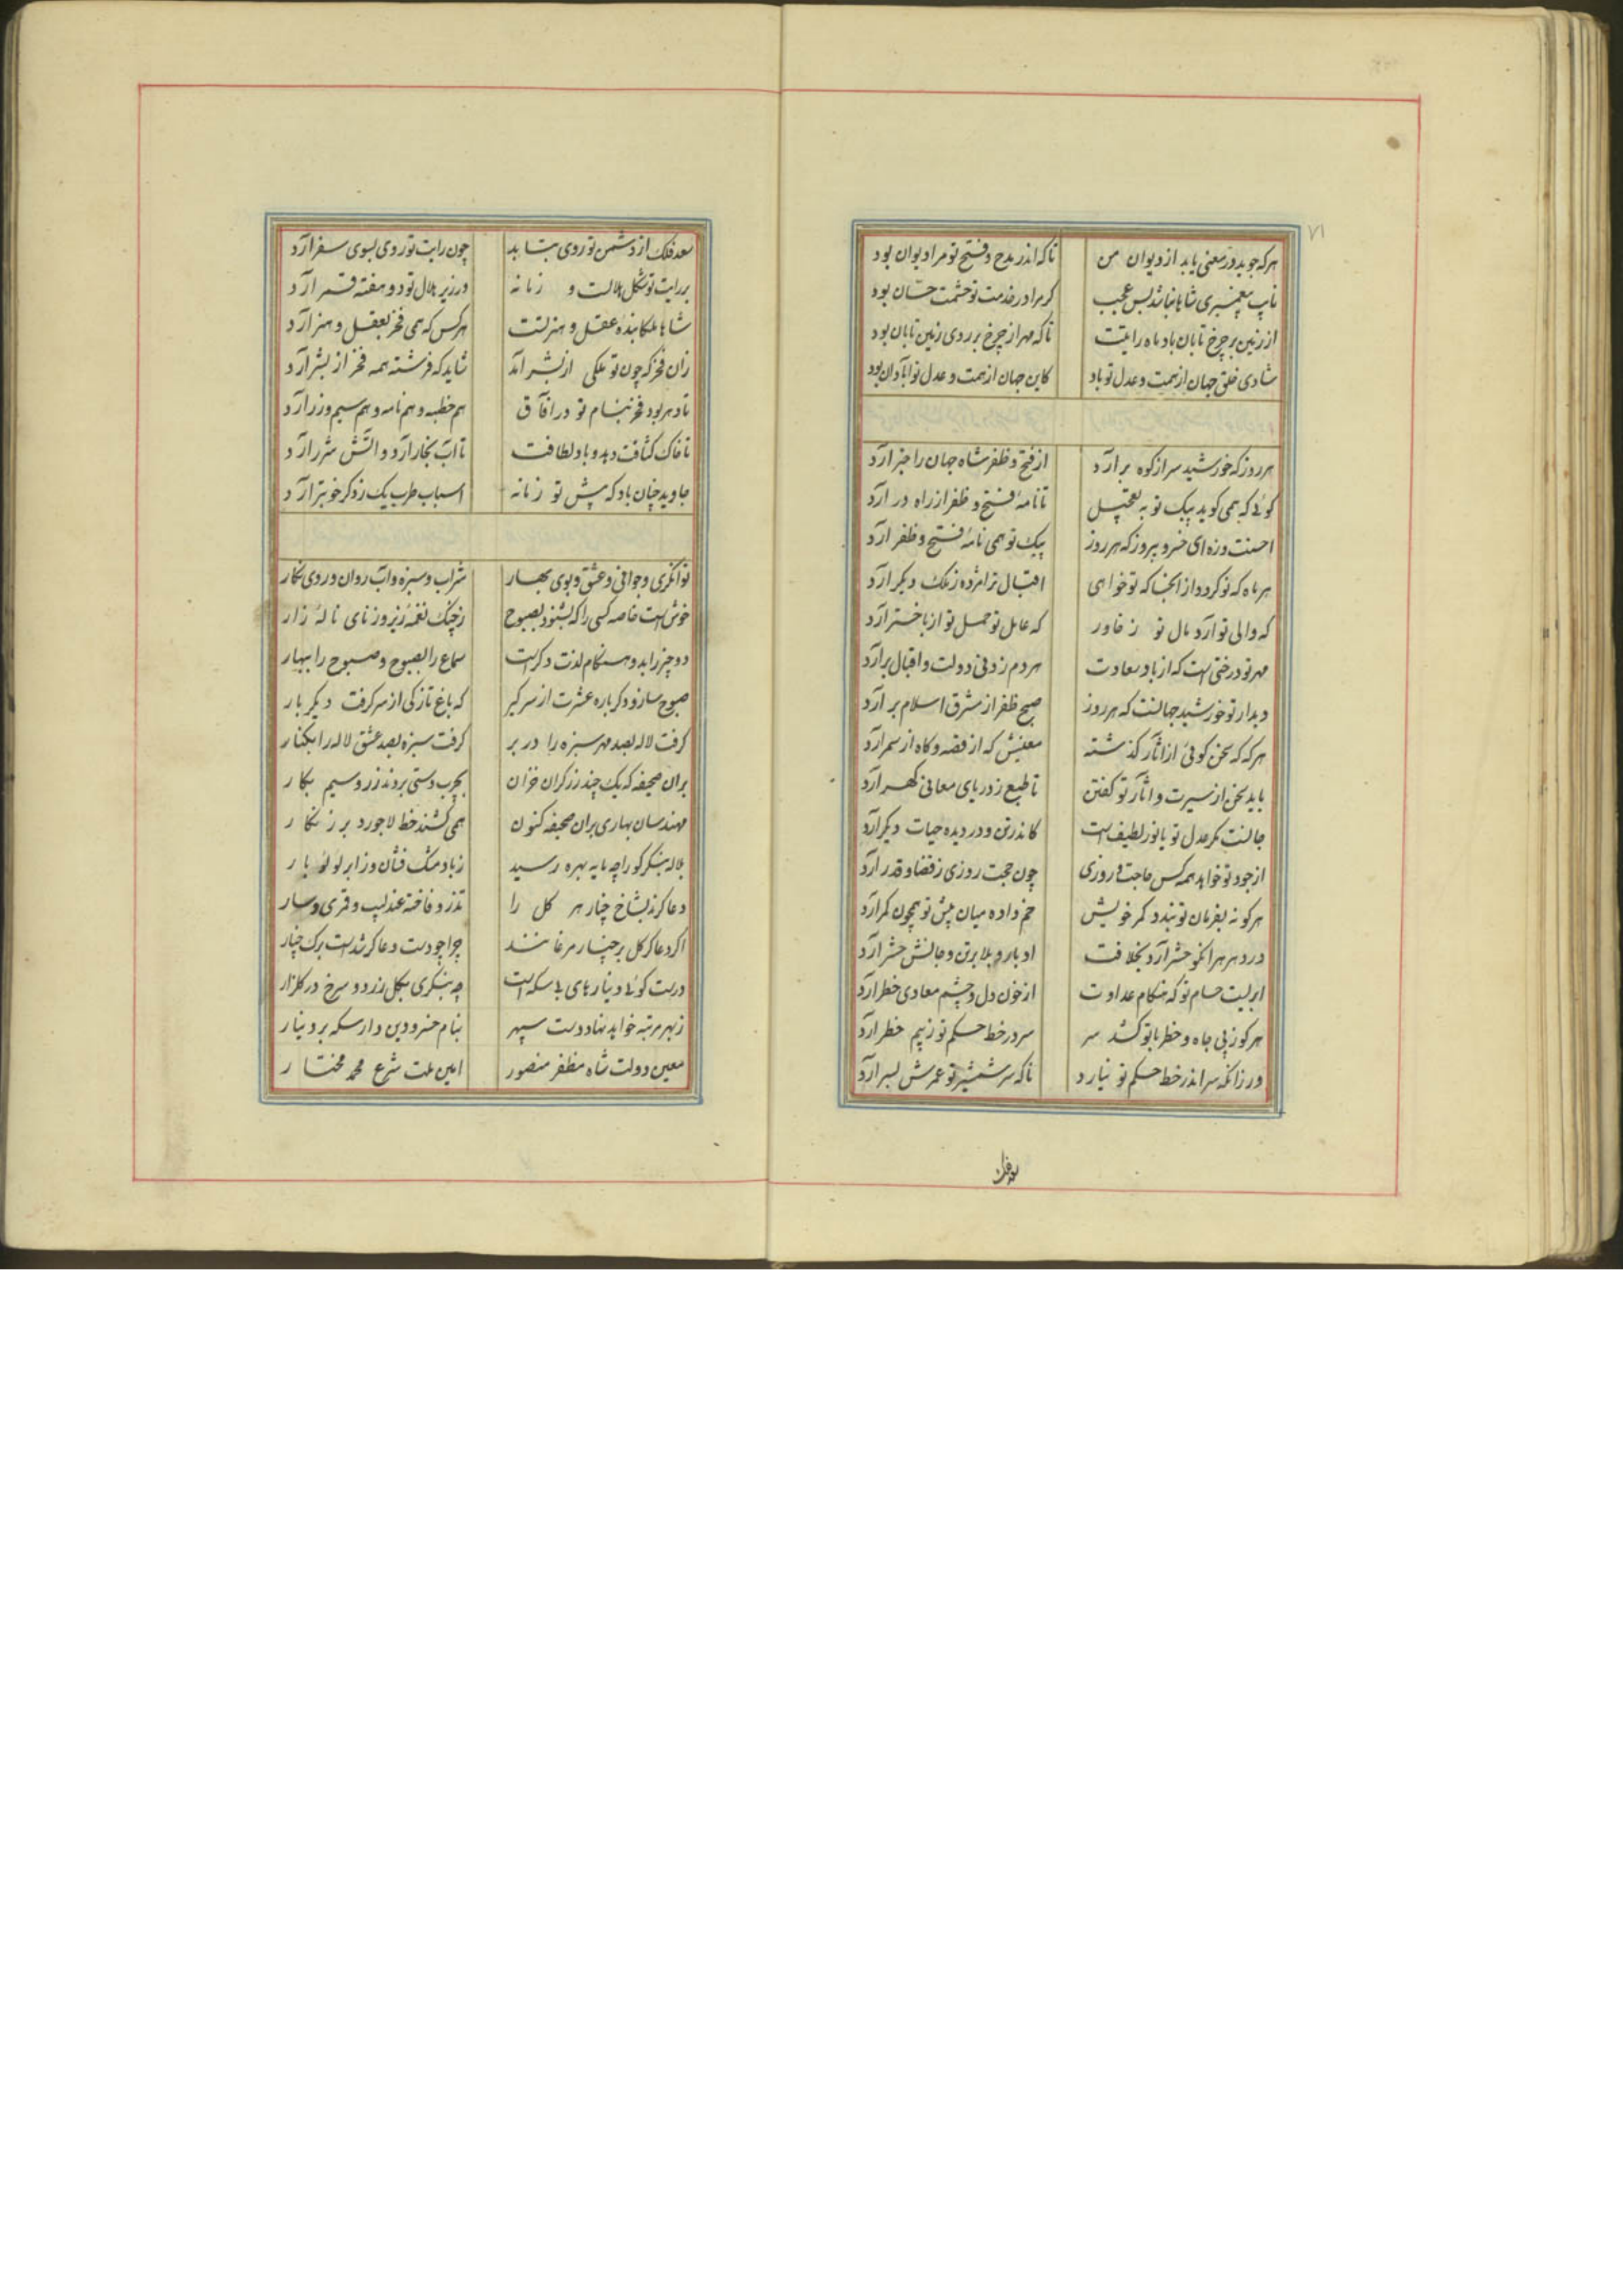 ۷۱
هرکه جوید در معنی یابد از دیوان من تا که اندر مدح و فتح تو مرا دیوان بود
نایب پیغمبری شاها نباشد بس عجب گر مرا در خدمت تو حشمت حسان بود
از زمین بر چرخ تابان باد ماه رایتت تا که مهر از چرخ بر روی زمین تابان بود
شادی خلق جهان از همت و عدل تو باد کاین جهان از همت و عدل تو آبادان بود
هر روز که خورشید سر از کوه برآرد از فتح و ظفر شاه جهان را خبر آرد
گوئی که همی گوید پیک تو به تعجیل تا نامهٔ فتح و ظفر از راه در آرد
احسنت وزه ای خسرو پیروز که هر روز پیک تو همی نامهٔ فتح و ظفر آرد
هر ماه که نو گردد از انجا که تو خواهی اقبال ترا مژده ز ملک دیگر آرد
که والی تو آرد مال تو ز خاور که عامل تو حمل تو از باختر آرد
مهر تو درختی است که از باد سعادت هر دم زدنی دولت و اقبال برآرد
دیدار تو خورشید جهانست که هر روز صبح ظفر از مشرق اسلام برآرد
هرکه که سخن گوئی از آثار گذشته معنیش که از قصه و گاه از سمر آرد
باید سخن از سیرت و آثار تو گفتن تا طبع ز دریای معانی گهر آرد
جانست مگر عدل تو یا نور لطیف است کاندر تن و در دیده حیات دیگر آرد
از جود تو خواهد همه کس حاجت و روزی چون حجت روزی ز قضا و قدر آرد
هرکو نه بفرمان تو بندد کمر خویش خم داده میان پیش تو همچون کمر آرد
در دهر هر انکو حشر آرد بخلافت ادبار و بلا بر تن و جانش حشر آرد
ابریست حسام تو که هنگام عداوت از خون دل و چشم معادی خطر آرد
هرکو ز پی جاه و خطر با تو کشد سر سر در خط حکم تو ز بیم خطر آرد
ور زانکه سر اندر خط حکم تو نیارد ناگه سر شمشیر تو عمرش بسر آرد
سعد فلک
سعد فلک از دشمن تو روی بتابد چون رایت تو روی بسوی سفر آرد
بر رایت تو شکل هلالست و زمانه در زیر هلال تو دو هفته قمر آرد
شاها ملکا بندهٔ عقل و هنر تست هرکس که همی فخر بعقل و هنر آرد
زان فخر که چون تو ملکی از بشر آمد شاید که فرشته همه فخر از بشر آرد
تا دهر بود فخر بنام تو در آفاق هم خطبه و هم نامه و هم سیم و زر آرد
تا خاک کثافت دهد و باد لطافت تا آب بخار آرد و آتش شرر آرد
جاوید چنان باد که پیش تو زمانه اسباب طرب یک ز دگر خوبتر آرد
توانگری و جوانی و عشق و بوی بهار شراب و سبزه و آب روان و روی نگار
خوش است خاصه کسی را که بشنود بصبوح ز چنگ نغمهٔ زیر و ز نای نالهٔ زار
دو چیز را بدو هنگام لذت دگرست سماع را بصبوح و صبوح را ببهار
صبوح ساز و دگر باره عشرت از سر گیر که باغ تازگی از سر گرفت دیگر بار
گرفت لاله بصد مهر سبزه را در بر گرفت سبزه بصد عشق لاله را بکنار
بران صحیفه که یک چند زرگران خزان بچرب دستی بردند زر و سیم بکار
مهندسان بهاری بران صحیفه کنون همی کشند خط لاجورد بر زنگار
بلاله بنگر کو را چه مایه بهره رسید ز باد مشک فشان وز ابر لؤلؤ بار
دعا کرند بشاخ چنار هر گل را تذرو فاخته عندلیب و قمری و سار
اگر دعاگر گل بر چنار مرغانند چرا چو دست دعاگر شدست برگ چنار
درست گوئی دینارهای بی سکه است چه بنگری بگل زرد و سرخ در گلزار
ز بهر مرتبه خواهد نهاد دست سپهر بنام خسرو دین دار سکه بر دینار
معین دولت شاه مظفر منصور امین ملت شرع محمد مختار